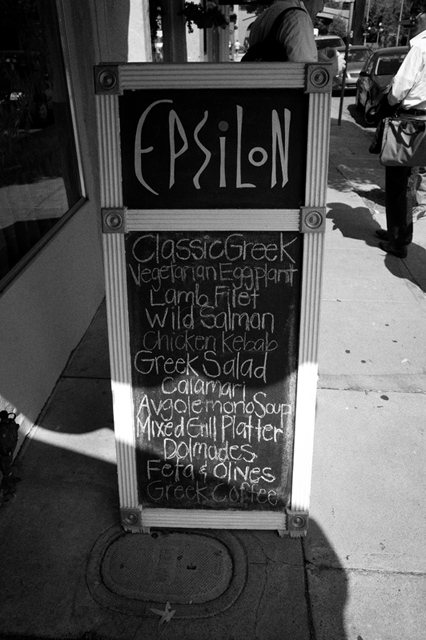 EPSiLoN
Classic Greek
Vegetarian Eggplant
Lamb Filet
Wild Salman
Chicken Kebab
Greek Salad
Calamari
Avgolemono Soup
Mixed Grill Platter
Dolmades
Feta & Olives
Greek Coffee